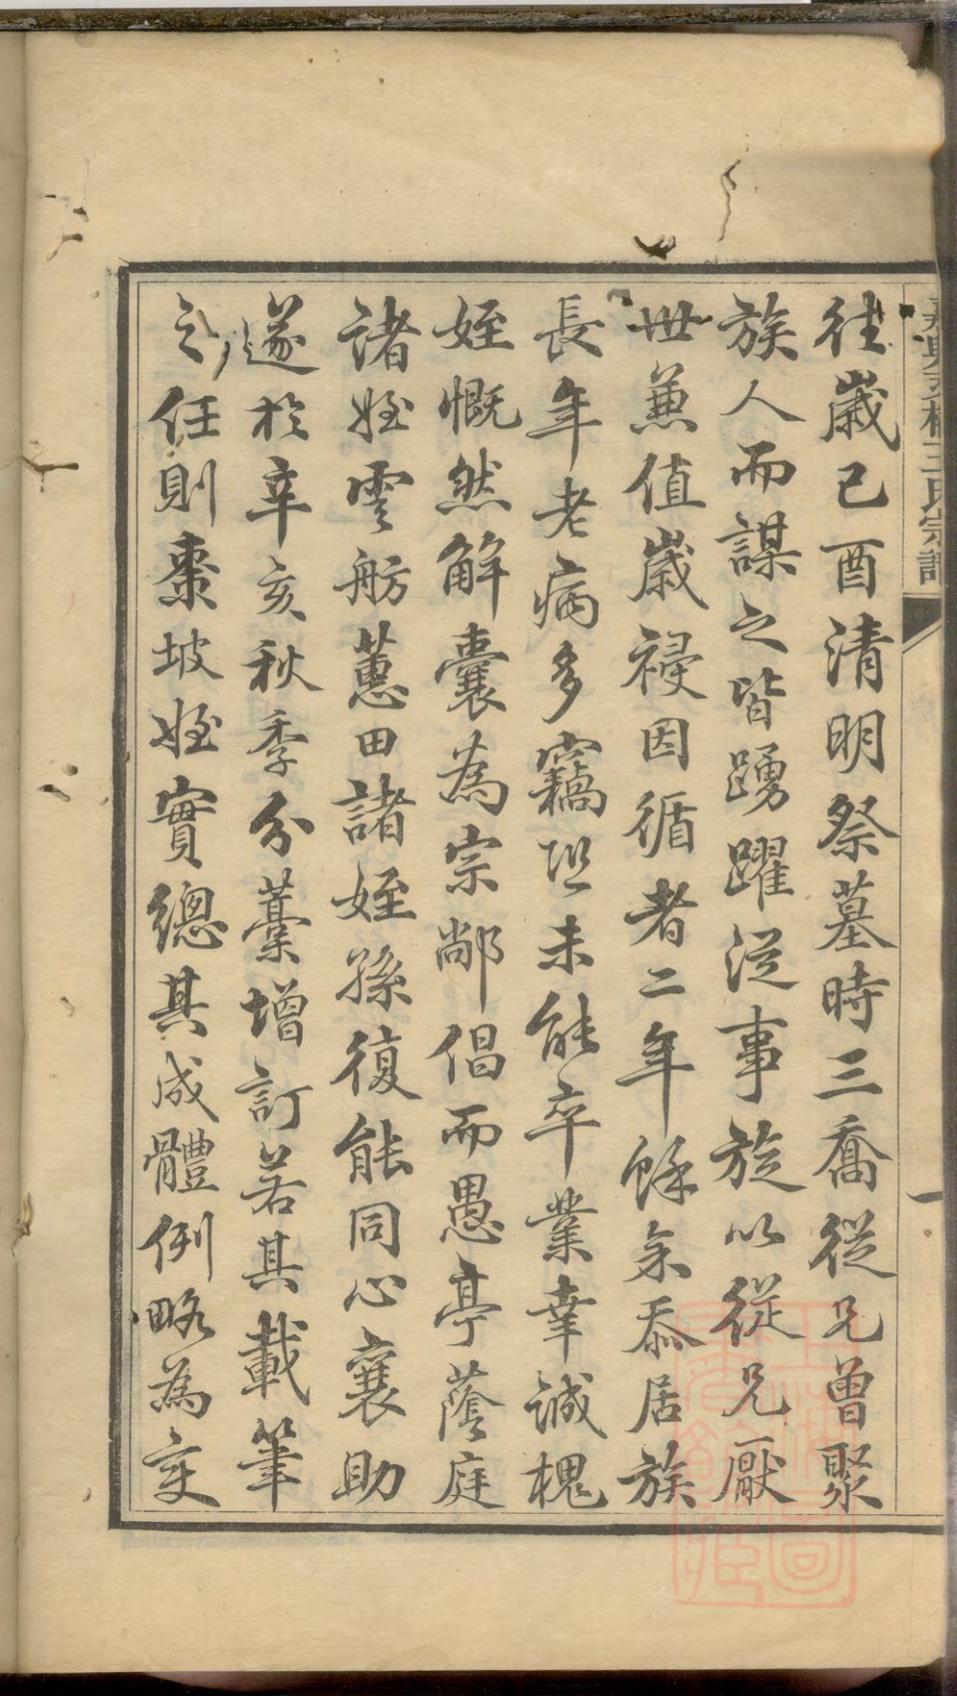 往歲己酉清明祭墓時三喬從兄曾聚
族人而謀之皆踴躍從事旋以從兄厭
世兼值歲祲因循者二年餘余忝居族
長年老病多竊恐未能卒業幸誠槐
姪慨然解囊為宗鄙倡而愚亭蔭庭
諸姪雲舫蕙田諸姪孫復能同心襄助
遂於辛亥秋季分藳增訂若其載筆
之任則棗坡姪實總其成體例略為変
王氏宗譜
一